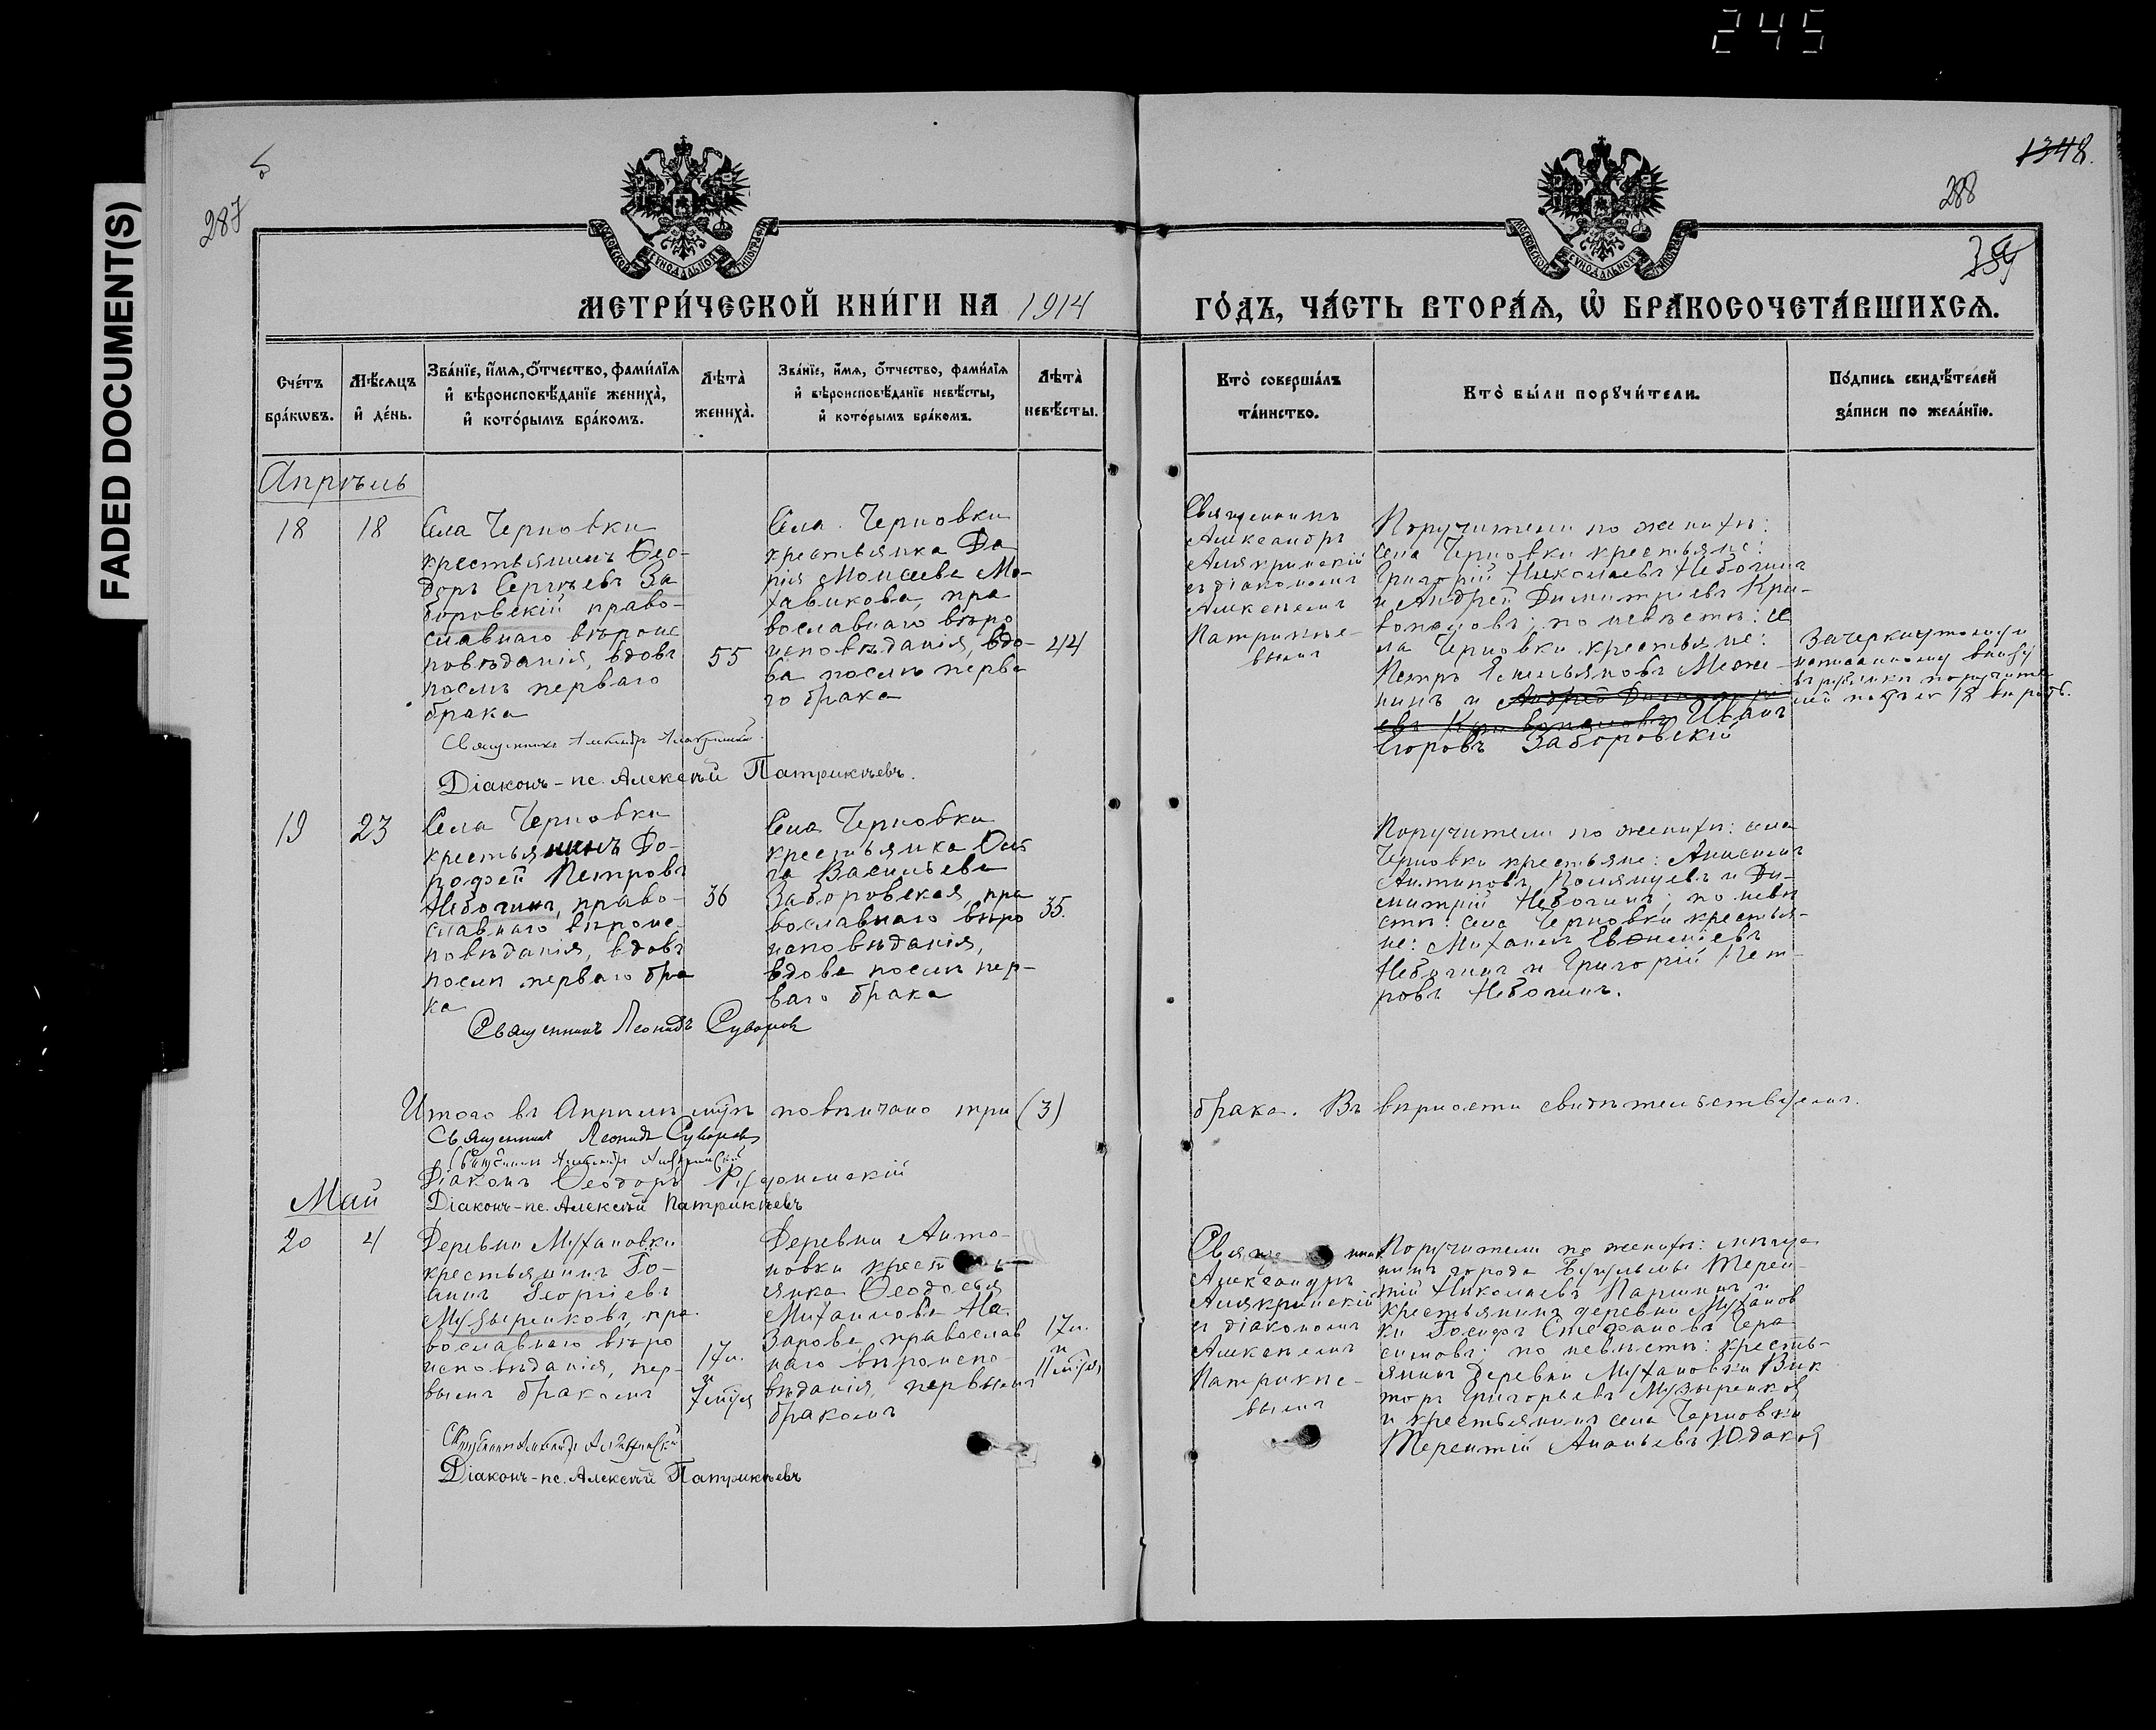 245
FADED DOCUMENT(S)
5
287
1348.
288
354
МОСКОВСКОЙ СѴНОДАЛЬНОЙ ТИПОГРАФІИ
МОСКОВСКОЙ СѴНОДАЛЬНОЙ ТИПОГРАФІИ
МЕТРИ́ЧЕСКОЙ КНИ́ГИ НА 1914
ГО́ДЪ, ЧА́СТЬ ВТОРА́Ѧ, Ѽ БРАКОСОЧЕТА́ВШИХСѦ.
Сче́тъ
бра́кѡвъ.
Мѣ́сѧцъ
и де́нь.
Зва́нїе, и́мѧ, ѻ҆́тчество, фами́лїѧ
и҆ вѣроисповѣ́данїе жениха̀,
и҆ кото́рымъ бра́комъ.
Лѣта̀
жениха̀.
Зва́нїе, и́мѧ, ѻ҆́тчество, фами́лїѧ
и҆ вѣроисповѣ́данїе невѣ́сты,
и҆ кото́рымъ бра́комъ.
Лѣта̀
невѣ́сты.
Кто̀ соверша́лъ
та́инство.
Кто̀ бы́ли порꙋчи́тели.
По́дпись свидѣ́телей
за́писи по жела́нїю.
Апрѣль
18
18
Села Черновки
крестьянинъ Ѳео-
доръ Сергѣевъ За
боровскій право-
славнаго вѣроис
повѣданія, вдовъ
послѣ перваго
брака
55
Села Черновки
крестьянка Да
рія Моисеева Мо-
хавикова, пра
вославнаго вѣро
исповѣданія, вдо-
ва послѣ перва
го брака
44
Священникъ
Александръ
Алякринскій
съ діакономъ
Алексѣемъ
Патрикѣе-
вымъ
Поручители по женихѣ:
села Черновки крестьяне:
Григорій Николаевъ Небогинъ
и Андрей Димитріевъ Кри-
воносовъ; по невѣстѣ: се
ла Черновки крестьяне:
Петръ Емельяновъ
и Андрей Димитрі
евъ Кривоносовъ Иванъ
Егоровъ Заборовскій
Зачеркнутому и
написанному внизу
въ рубрикѣ поручите
лей подъ № 18 вѣрить.
Священникъ Александръ Алякринскій.
Діаконъ-пс. Алексѣй Патрикѣевъ.
19
23
Села Черновки
крестьянинъ До-
рофей Петровъ
Небогинъ, право-
славнаго вѣроис-
повѣданія, вдовъ
послѣ перваго бра
ка
36
Села Черновки
крестьянка Оль
га Васильева
Заборовская, пра
вославнаго вѣро
исповѣданія,
вдова послѣ пер-
ваго брака
35.
Поручители по женихѣ: села
Черновки крестьяне: Анисимъ
Антиповъ и Ди-
митрій Небогинъ; по невѣ
стѣ: села Черновки крестья-
не: Михаилъ Евѳиміевъ
Небогинъ и Григорій Пет-
ровъ Небогинъ.
Священникъ Леонидъ Суворовъ
Итого въ Апрѣлѣ мѣсяцѣ повѣнчано три (3)
брака. Въ вѣрности свидѣтельствуемъ.
Священникъ Леонидъ Суворовъ
Священникъ Александръ Алякринскій
Діаконъ Ѳеодоръ
Діаконъ-пс. Алексѣй Патрикѣевъ
Май
20
4
Деревни Мухановки
крестьянинъ Іо-
аннъ Георгіевъ
Музыренковъ, пра
вославнаго вѣро
исповѣданія, пер-
вымъ бракомъ
17 л.
и
7 мѣся
Деревни Анто-
новки кресть-
янка Ѳеодосья
Михаилова На
зарова, православ
наго вѣроиспо-
вѣданія, первымъ
бракомъ
17 л.
и
11 мѣсяц
Священникъ
Александръ
Алякринскій
съ діакономъ
Алексѣемъ
Патрикѣе-
вымъ
Поручители по женихѣ: мѣща
нинъ города Бугульмы Терен-
тій Николаевъ Паршинъ и
крестьянинъ деревни Муханов
ки Іосифъ Стефановъ Гера
симовъ; по невѣстѣ: кресть-
янинъ деревни Мухановки Вик
торъ Григорьевъ Музыренковъ
и крестьянинъ села Черновки
Терентій Ананьевъ Юдаковъ
Священникъ Александръ Алякринскій
Діаконъ-пс. Алексѣй Патрикѣевъ